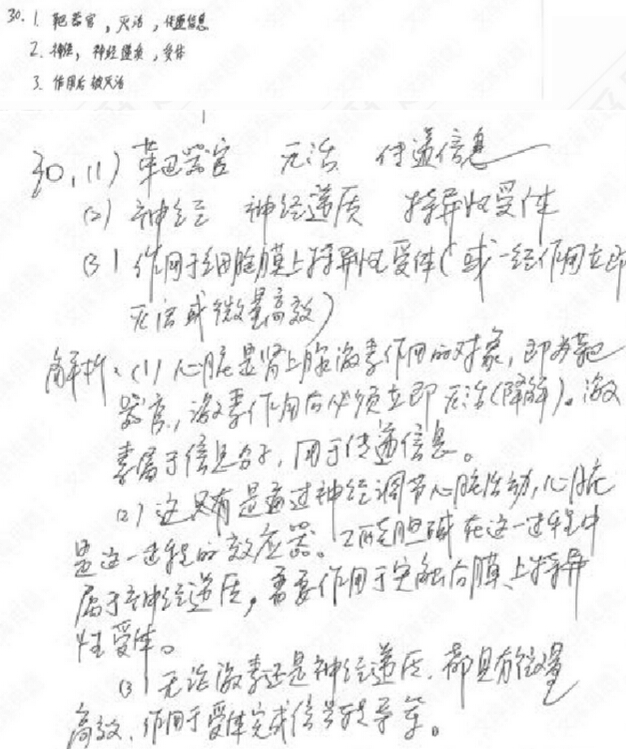 30. 1. 靶器官，灭活，传递信息
2. 神经，神经递质，受体
3. 作用后被灭活
30.(1) 靶器官 灭活 传递信息
(2) 神经 神经递质 特异性受体
(3) 作用于细胞膜上特异性受体(或一经作用立即
灭活或微量高效)
解析:(1) 心脏是肾上腺激素作用的对象，即为靶
器官，激素作用后必须立即灭活(降解)。激
素属于信息分子，用于传递信息。
(2) 这只有是通过神经调节心脏活动，心脏
是这一过程的效应器。乙酰胆碱在这一过程中
属于神经递质，需要作用于突触后膜上特异
性受体。
(3) 无论激素还是神经递质，都具有微量
高效，作用于受体完成信号转导等。